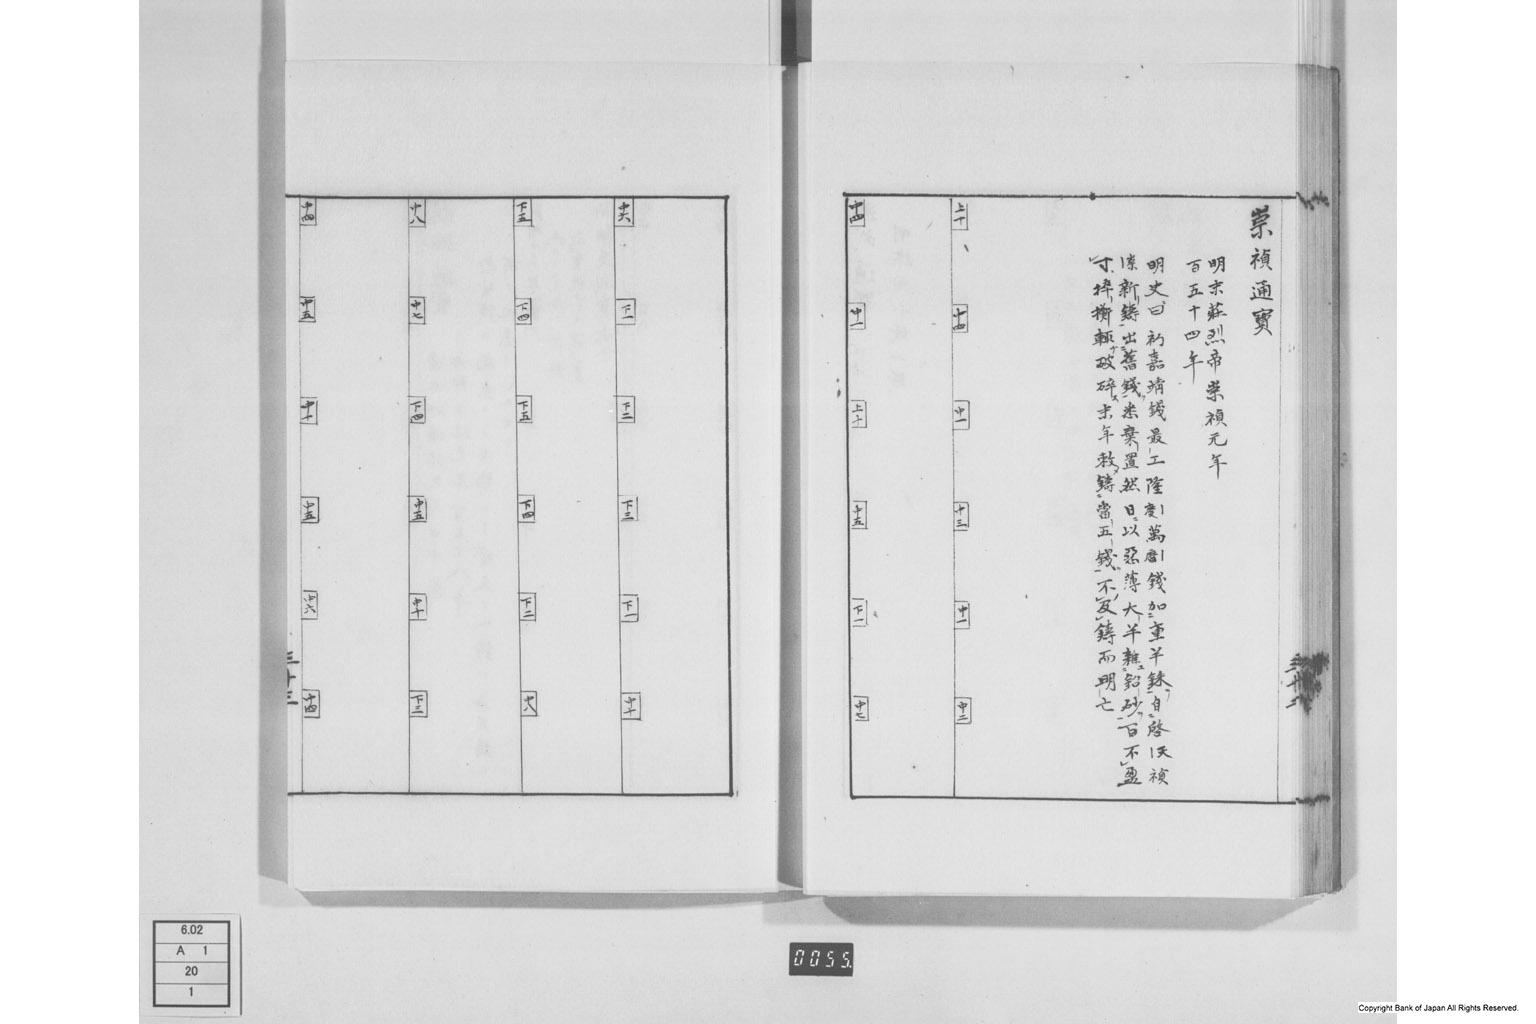 崇禎通寳
明末莊烈帝崇禎元年
百五十四年
明史曰初嘉靖錢最工隆慶萬曆錢加重半銖自啓天禎
漆新鑄出舊錢悉棄置然日以惡薄大半雜鉛砂百不盈
寸捽擲輒破碎末年敕鑄當五錢不及鑄而明亡
上十
中四
中一
中三
中一
中二
中四
中一
上十
中五
下一
中七
中六
下一
下二
下三
下一
中十
下五
下四
下五
下四
下二
中八
中八
中七
下四
中五
中十
下三
中四
中五
中十
中五
中六
中四
三十三
6.02
A 1
20
1
0055.
Copyright Bank of Japan All Rights Reserved.